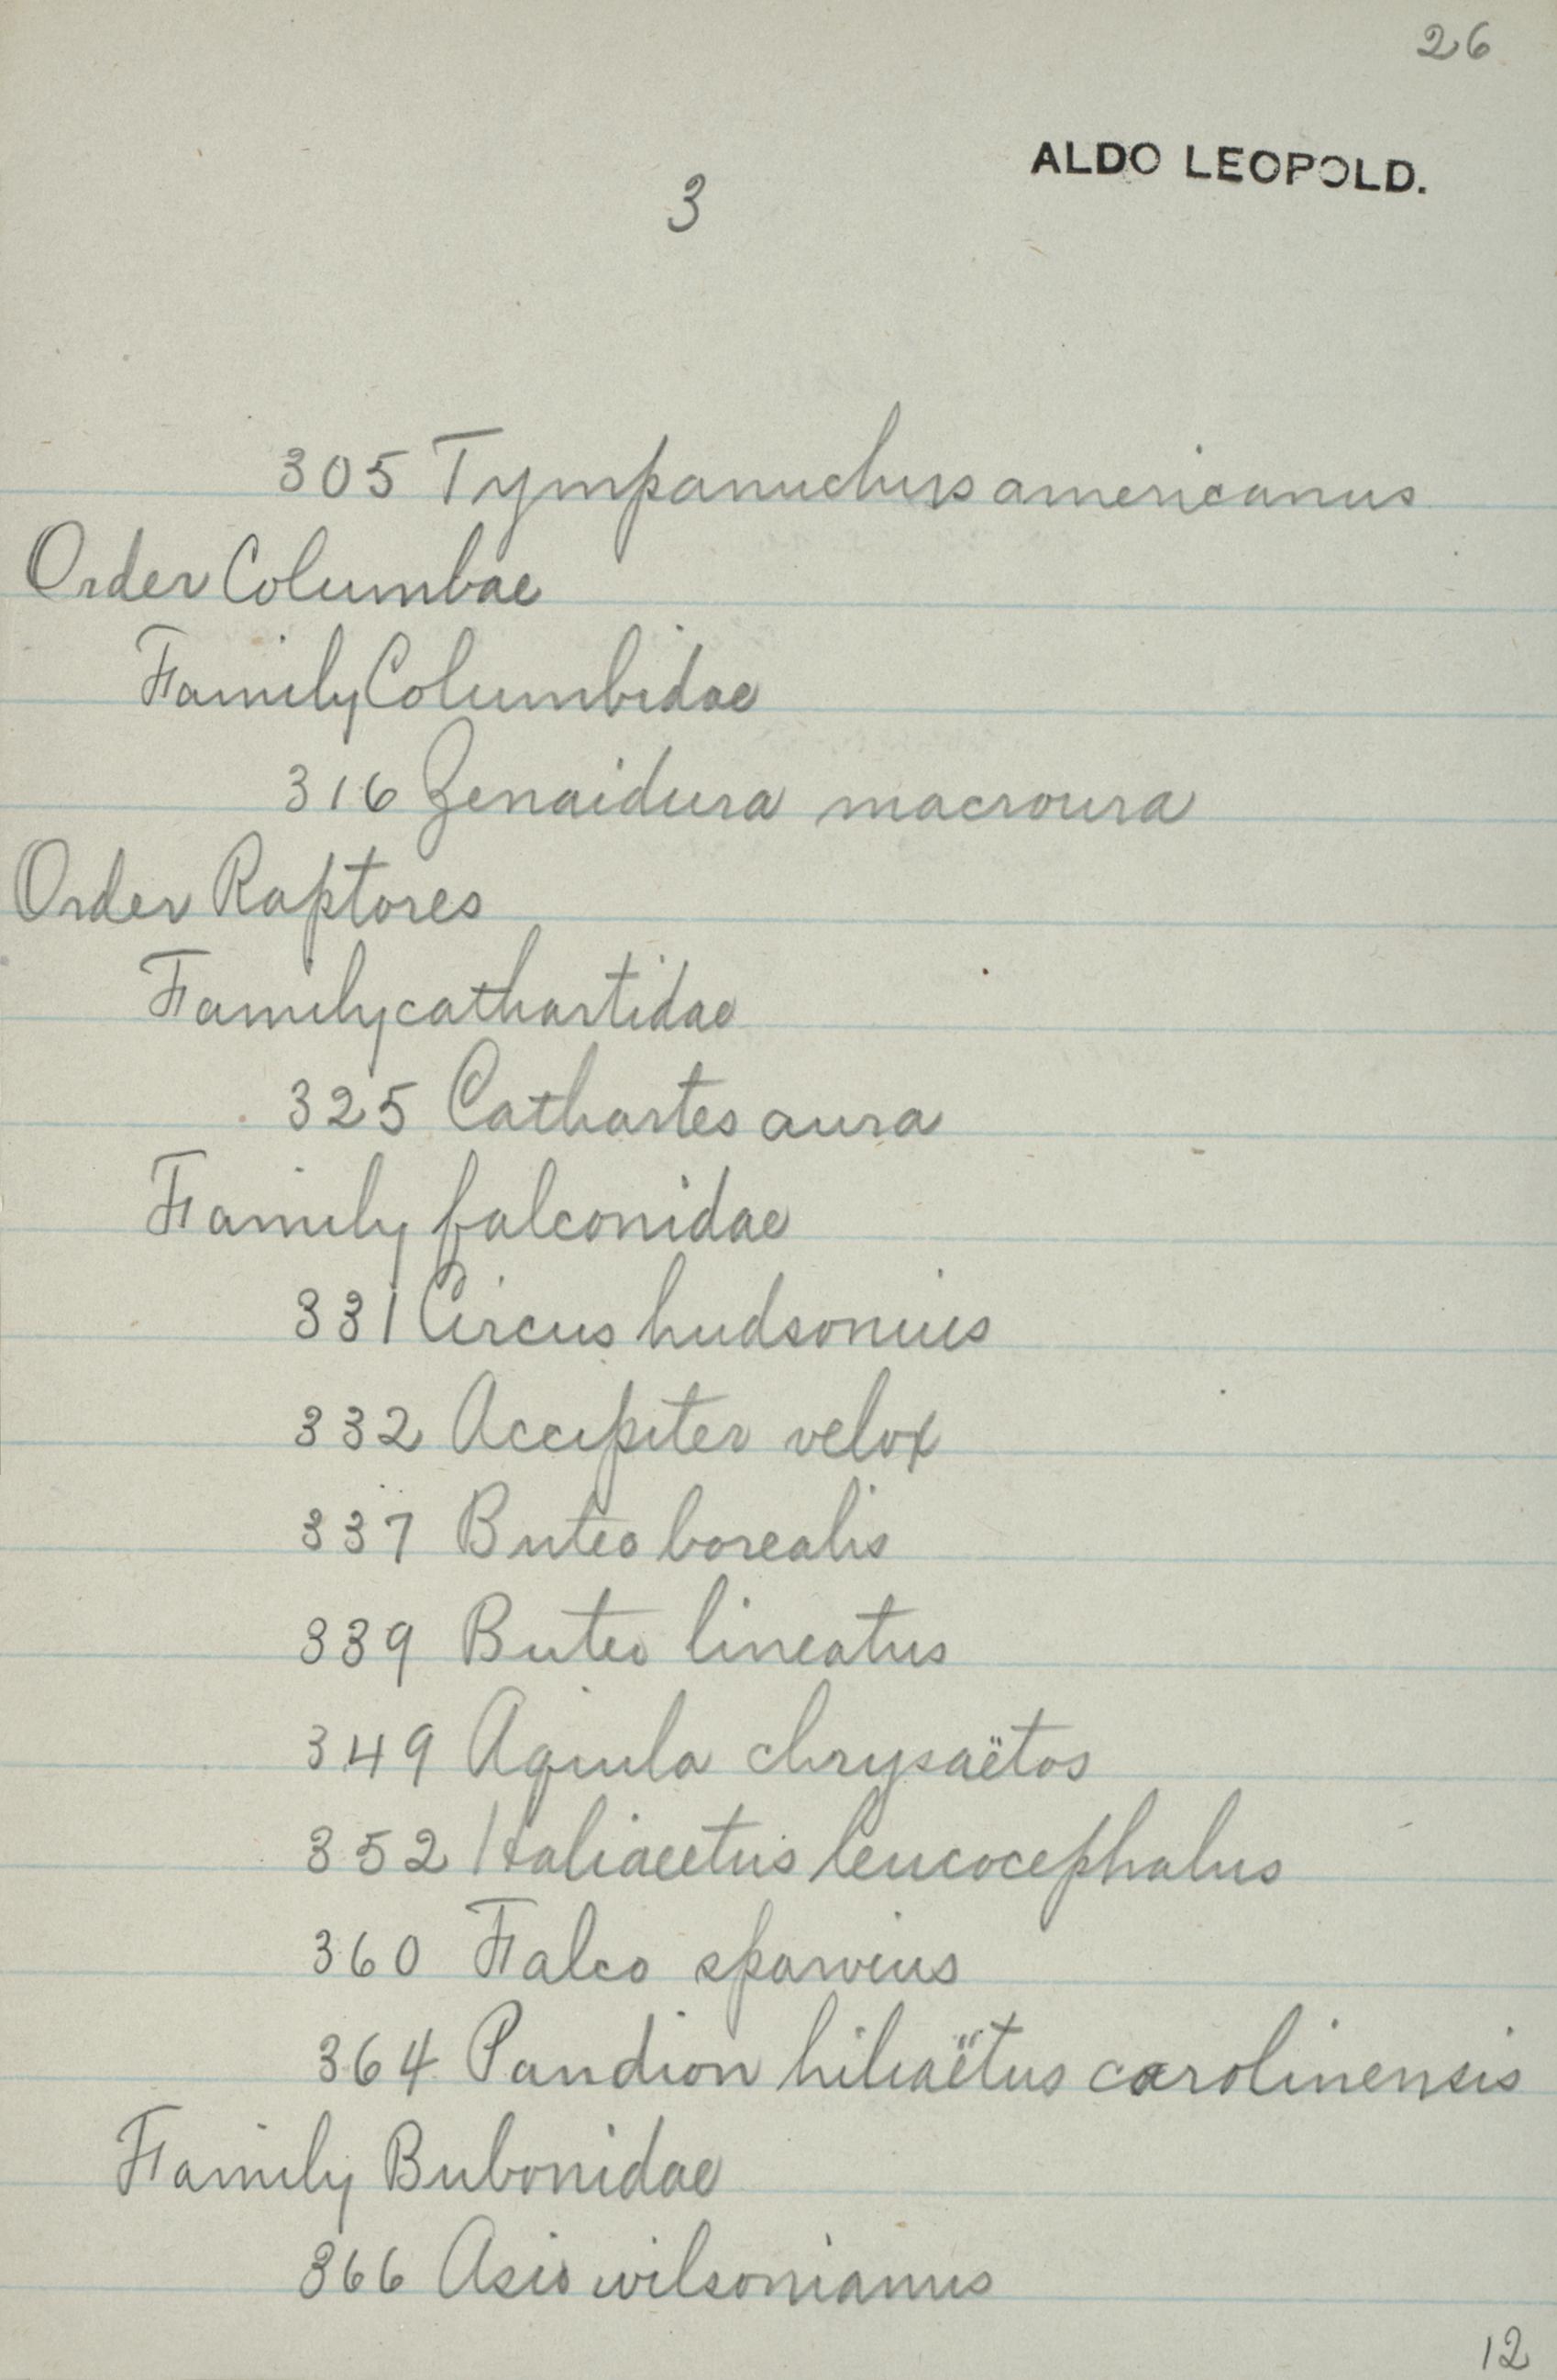 26
ALDO LEOPOLD.
3
305 Tympanuchus americanus
Order Columbae
Family Columbidae
316 Zenaidura macroura
Order Raptores
Family cathartidae
325 Cathartes aura
Family falconidae
331 Circus hudsonius
332 Accipiter velox
337 Buteo borealis
339 Buteo lineatus
349 Aquila chrysaëtos
352 Haliaeetus leucocephalus
360 Falco sparvius
364 Pandion hiliaëtus carolinensis
Family Bubonidae
366 Asio wilsonianus
12